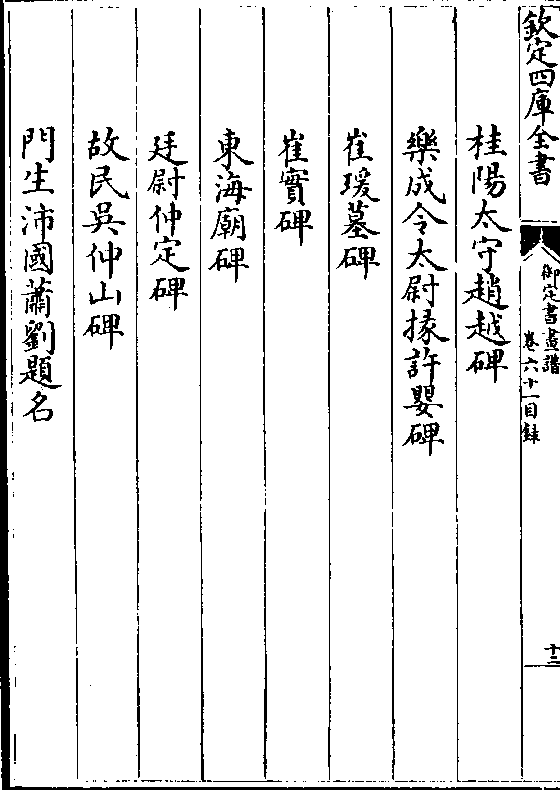 欽定四庫全書
御定書畫譜
卷六十一目錄
十三
桂陽太守趙越碑
樂成令太尉掾許嬰碑
崔瑗墓碑
崔實碑
東海廟碑
廷尉仲定碑
故民吳仲山碑
門生沛國蕭劉題名